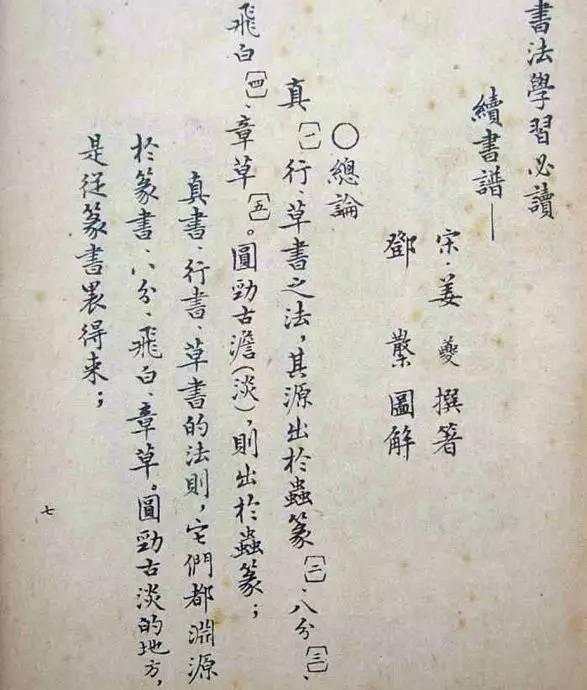 書法學習必讀
續書譜——
宋·姜夔撰著
鄧散圖解
〇總論
真〔一〕、行、草書之法，其源出於蟲篆〔二〕、八分〔三〕、
飛白〔四〕、章草〔五〕。圓勁古澹(淡)，則出於蟲篆；
真書、行書、草書的法則，它們都淵源
於篆書、八分、飛白、章草。圓勁古淡的地方，
是從篆書裏得来；
七